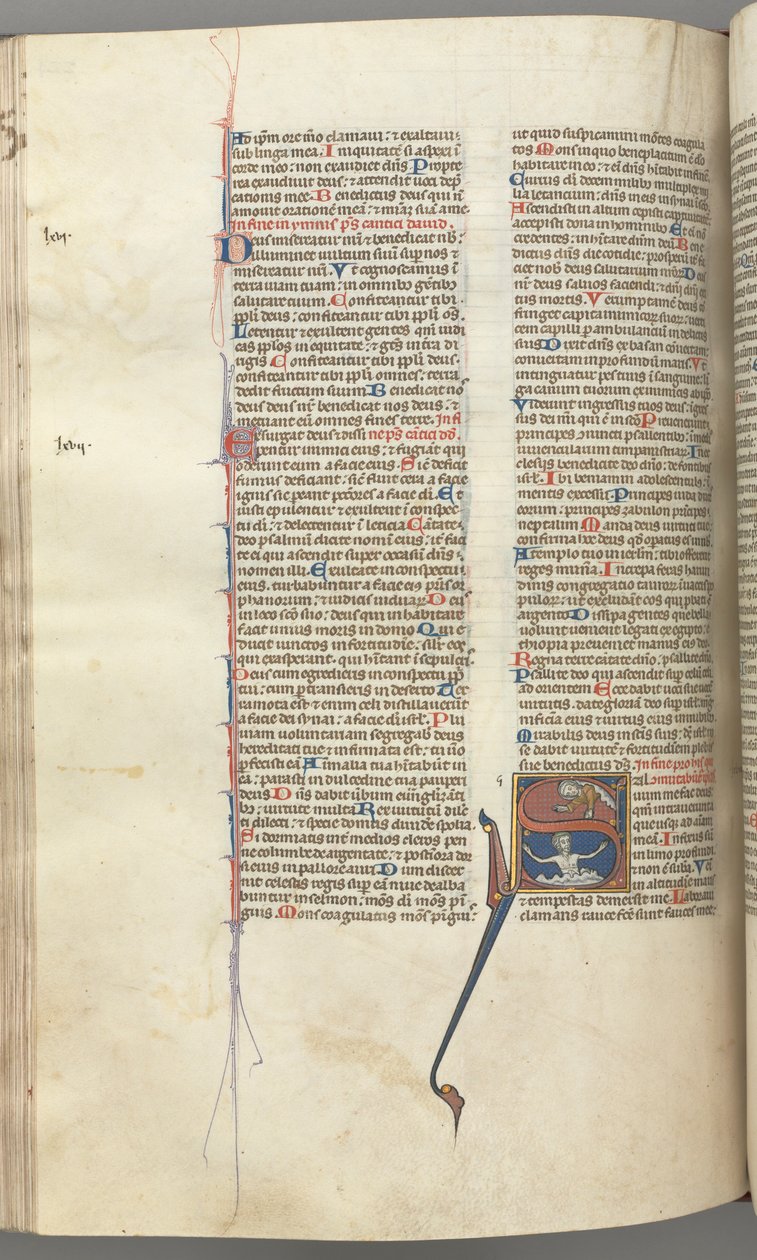 Ad ip̄m ore m̄o clamaui : ⁊ exaltaui
sub lingua mea. Iniquitatē si aspexi ī
corde meo : non exaudiet dn̄s. Propte
rea exaudiuit deus : ⁊ attendit uoci dep̄
cationis mee. Benedictus deus qui nō
amouit orationē meā : ⁊ mīaʒ suā a me.
In fine in ymnis p̄s cantici dauid.
lxvi.
Deus misereatur nr̄i ⁊ benedicat nob̄ :
illuminet uultum suū sup nos ⁊
misereatur nr̄i. Ut cognoscamus ī
terra uiam tuam : in omnibꝰ gētibꝰ
salutare tuum. Confiteantur tibi
pp̄li deus : confiteantur tibi pp̄li om̄s.
Letentur ⁊ exultent gentes qm̄ iudi
cas pp̄los in equitate : ⁊ gēs in t̄ra di
rigis. Confiteantur tibi pp̄li deus.
confiteantur tibi pp̄li omnes : terra
dedit fructum suum. Benedicat nos
deus deus nr̄ benedicat nos deus : ⁊
metuant eum omnes fines terre. In fi
lxvii.
Exurgat deus ⁊ dissi ne p̄s cātici dd̄.
pentur inimici eius : ⁊ fugiant qui
oderunt eum a facie eius. Sic̄ deficit
fumus deficiant : sic̄ fluit cera a facie
ignis sic pereant pctōres a facie dī. Et
iusti epulentur ⁊ exultent ī conspec
tu dī : ⁊ delectentur ī leticia. Cātate
deo psalmū dicite nomī eius : it̄ faci
te ei qui ascendit super occasū dn̄s
nomen illi. Exultate in conspectu
eius. turbabuntur a facie eius pr̄is or
phanorum : ⁊ iudicis uiduaꝝ. Deus
in loco sc̄o suo : deus qui inhabitare
facit unius moris in domo. Qui e
ducit uinctos in fortitudīe : sil̄r eos
qui exasperant. qui hītant ī sepulcris.
Deus cum egredieris in conspectu pp̄li
tui : cum ptransieris in deserto. Ter
ra mota est ⁊ enim celi distillauerūt
a facie dei synai : a facie dī isrl̄. Plu
uiam uoluntariam segregabis deus
hereditati tue ⁊ infirmata est : tu uͦ
pfecisti eā. Animalia tua hītabūt in
ea : parasti in dulcedine tua pauperi
deus. Dn̄s dabit ūbum euāgelizāti
bꝰ : uirtute multa. Rex uirtutū dile
cti dilecti : ⁊ speciei domus diuide spolia.
Si dormiatis int̄ medios cleros pen
ne columbe deargentate : ⁊ posteriora dor
si eius in pallore auri. Dum discer
nit celestis reges sup eā niue dealba
buntur in selmon : mōs dī mōs pī
guis. Mons coagulatus mōs pīguis :
ut quid suspicamini mōtes coagula
tos. Mons in quo beneplacitum ē dō
habitare in eo : ⁊ eī dn̄s hītabit in finē.
Currus dī decem milibꝰ multiplex mi
lia letancium : dn̄s in eis in syna ī scō.
Ascendisti in altum cepisti captiuitatē
accepisti dona in hominibꝰ. Et eī nō
credentes : inhītare dn̄m deū. Bene
dictus dn̄s die cotidie : prosperū it̄ fa
ciet nob̄ deus salutarium nr̄oꝝ. Deus
nr̄ deus saluos faciendi : ⁊ dn̄i dn̄i exi
tus mortis. Verumptamē deus cō
fringet capita inimicoꝝ suoꝝ : uerti
cem capilli pambulantiū in delictis
suis. Dixit dn̄s ex basan cōuertam :
conuertam in profundū maris. Ut
intinguatur pes tuus ī sanguine : lī
gua canum tuorum ex inimicis ab ip̄o.
Viderunt ingressus tuos deus : īgres
sus dei mī qui ē in scō. Preuenerunt
principes iuncti psallentibꝰ : ī medio
iuuencularum timpanistriaꝝ. In ec
clesijs benedicite deo dn̄o : de fontibꝰ
isrl̄. Ibi beniamin adolescentulꝰ : ī
mentis excessū. Principes iuda duces
eorum : principes zabulon prīcipes
neptalim. Manda deus uirtuti tue :
confirma hoc deus qd̄ opatus es in nob̄.
A templo tuo in ierl̄m : tibi offerent
reges munā. Increpa feras harun
dinis congregatio tauroꝝ ī uaccis po
puloꝝ : ut excludāt eos qui pbati s̄
argento. Dissipa gentes que bella
uolunt uenient legati ex egipto : e
thiopia preueniet manus eius deo.
Regna terre cātate dn̄o : psallite dn̄o.
Psallite deo qui ascendit sup celū celi
ad orientem. Ecce dabit uoci sue uocē
uirtutis. date gloriā deo sup isrl̄ : mag
nificēcia eius ⁊ uirtus eius in nubibꝰ.
Mirabilis deus in scīs suis : deꝰ isrl̄ ip
se dabit uirtutē ⁊ fortitudinem plebis
sue benedictus dꝰ. In fine pro his qui
Saluum me fac deus :
qm̄ intrauerunt
aque usqꝫ ad aīam
meā. Infixus sū
in limo profundi
⁊ non ē suba. Veni
in altitudiē maris
⁊ tempestas demersit me. Laboraui
clamans rauce fc̄e sunt fauces mee :